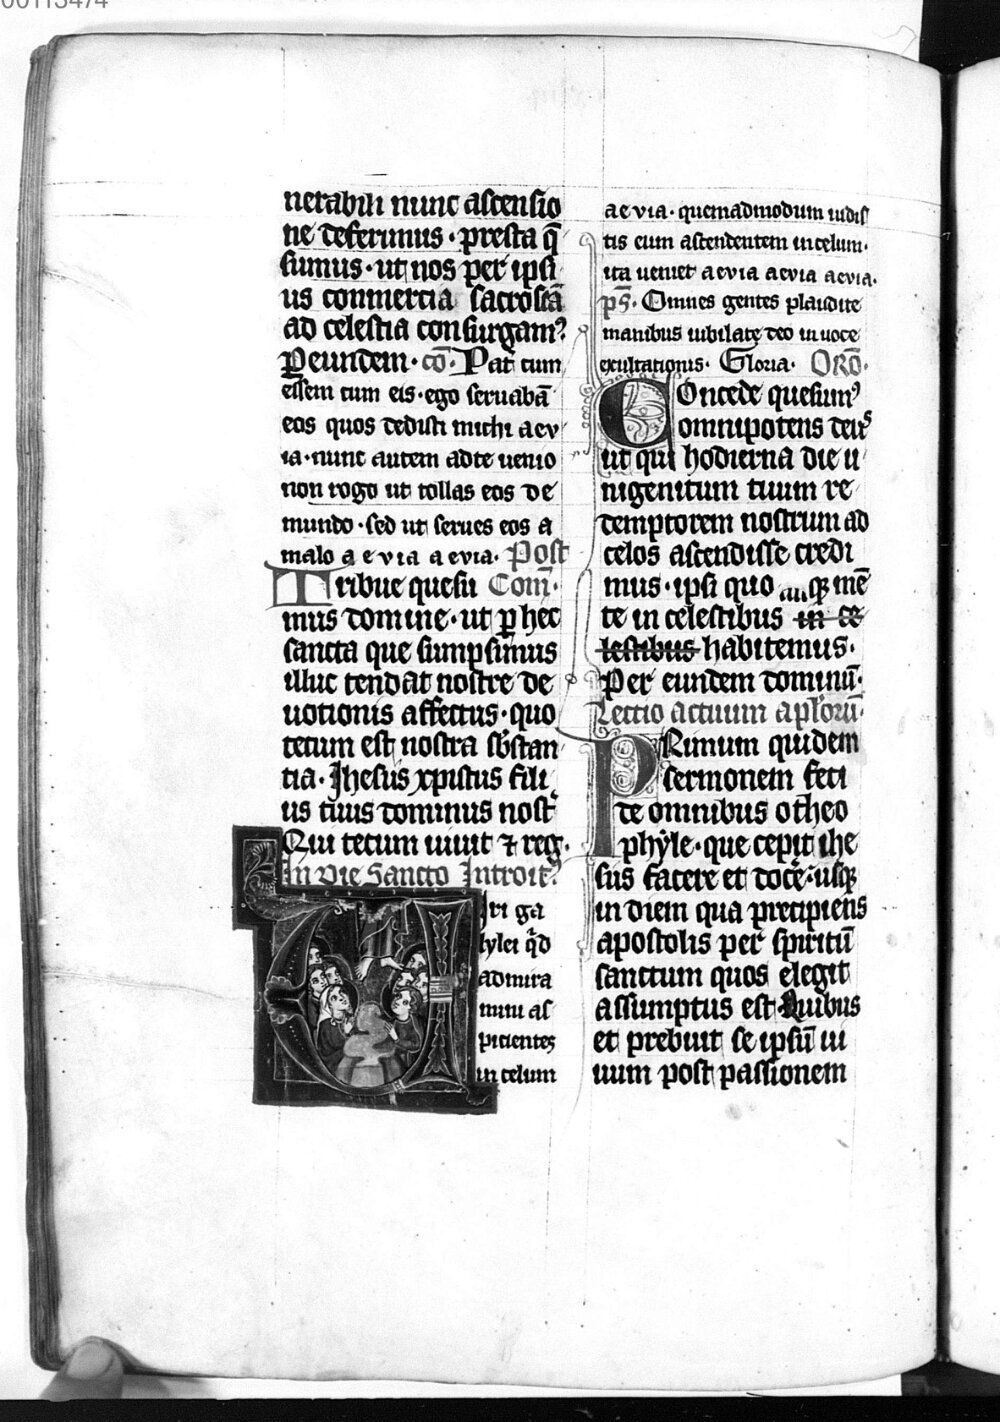 00113474
nerabili nunc ascensio
ne deferimus · presta q̄
sumus · ut nos per ipsi
us conmertia sacroscā
ad celestia consurgam⁹
Peundem · cō · Pat̄ cum
essem cum eis · ego seruabā
eos quos dedisti michi aev
ia · nunc autem adte uenio
non rogo ut tollas eos de
mundo · sed ut serues eos a
malo a e v i a a e via · Post
Tribue quesu Com̄ ·
mus domine · ut p̱ hec
sancta que sumpsimus
illuc tendat nostre de
uotionis affectus · quo
tecum est nostra sb̄stan
tia · Jhesus xpistus fili
us tuus dominus nost̄
Qui tecum uiuit ⁊ reg̅ ·
In die Sancto Introit⁹
Viri ga
lylei q̄d
admira
mini as
picientes
in celum
ae via · quemadmodum uidis
tis eum ascendentem incelum ·
ita ueniet aevia aevia aevia ·
ps̄ · Omnes gentes plaudite
manibus iubilate deo in uoce
exultationis · Gloria · ORŌ ·
Concede quesum⁹
omnipotens deus
ut qui hodierna die u
nigenitum tuum re
demptorem nostrum ad
celos ascendisse credi
mus · ipsi quo q̄ mē
te in celestibus in ce
lestibus habitemus ·
Per eundem dominū ·
Lectio actuum apl'orū ·
PRimum quidem
sermonem feci
de omnibus otheo
phyle · que cepit ihe
sus facere et docē · usq̄
in diem qua precipiens
apostolis per spiritū
sanctum quos elegit
assumptus est Quibus
et prebuit se ipsū ui
uum post passionem